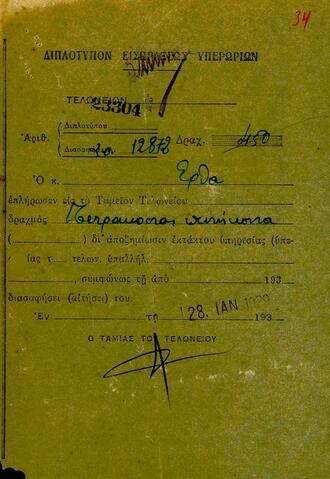 34
ΔΙΠΛΟΤΥΠΟΝ ΕΙΣΠΡΑΞΕΩΣ ΥΠΕΡΩΡΙΩΝ
ΤΕΛΩΝΕΙΟΝ
23304
Ἀριθ. Διπλοτύπου Δραχ. 450
Διασαφ. 12872
Ὁ κ.
ἐπλήρωσεν εἰς τὸ Ταμεῖον Τελωνείου
δραχμὰς Τετρακοσίας πενήκοντα
( ) δι' ἀποζημίωσιν ἐκτάκτου ὑπηρεσίας (ὑπε-
ρίας τ τελων. ὑπαλλήλ.
, συμφώνως τῇ ἀπὸ 193
διασαφήσει (αἰτήσει) του
Ἐν τῇ 28. ΙΑΝ 193
Ο ΤΑΜΙΑΣ ΤΟΥ ΤΕΛΩΝΕΙΟΥ